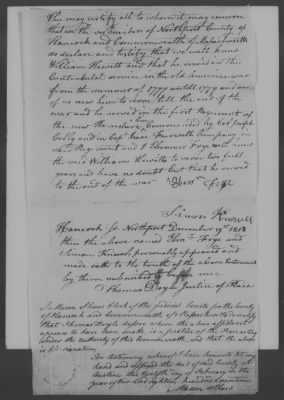 This may certify all to whom it may concern
that we the subscribers of Northport County of
Hancock and Commonwealth of Massachusetts
do declare and testify that we well knew
William Hewitt and that he served in the
Continental service in the old American war
from the summer of 1777 untill 1779 and one
of us new him to serve till the end of the
war and he served in the first Regiment of
the new Hamshire Commanded by Col Joseph
Celly and in Capt Isaac Farewell Company in
said Regiment and I Ebenezer Frye well knew
the said William Hewitt to serve two full
years and have no doubt but that he served
to the end of the war
Frye
Simon
Hancock Ss Northport December 19th 1818
then the above named Eben Frye and
Simon personally appeared and
made oath to the truth of the above Instrument
by them subscribed before me
Thomas Doyle Justice of Peace
I Mason Shaw Clerk of the Judicial Courts for the County
of Hancock and Commonwealth of Massachusetts do certify
that Thomas Doyle before whom the above affidavit
appears to have been made is a Justice of the Peace acting
under the authority of this Commonwealth and that the above
is his signature
In testimony whereof I have hereunto set my
hand and affixed the seal of said County at
Castine this twelfth day of February in the
year of our Lord eighteen hundred &
Mason Shaw